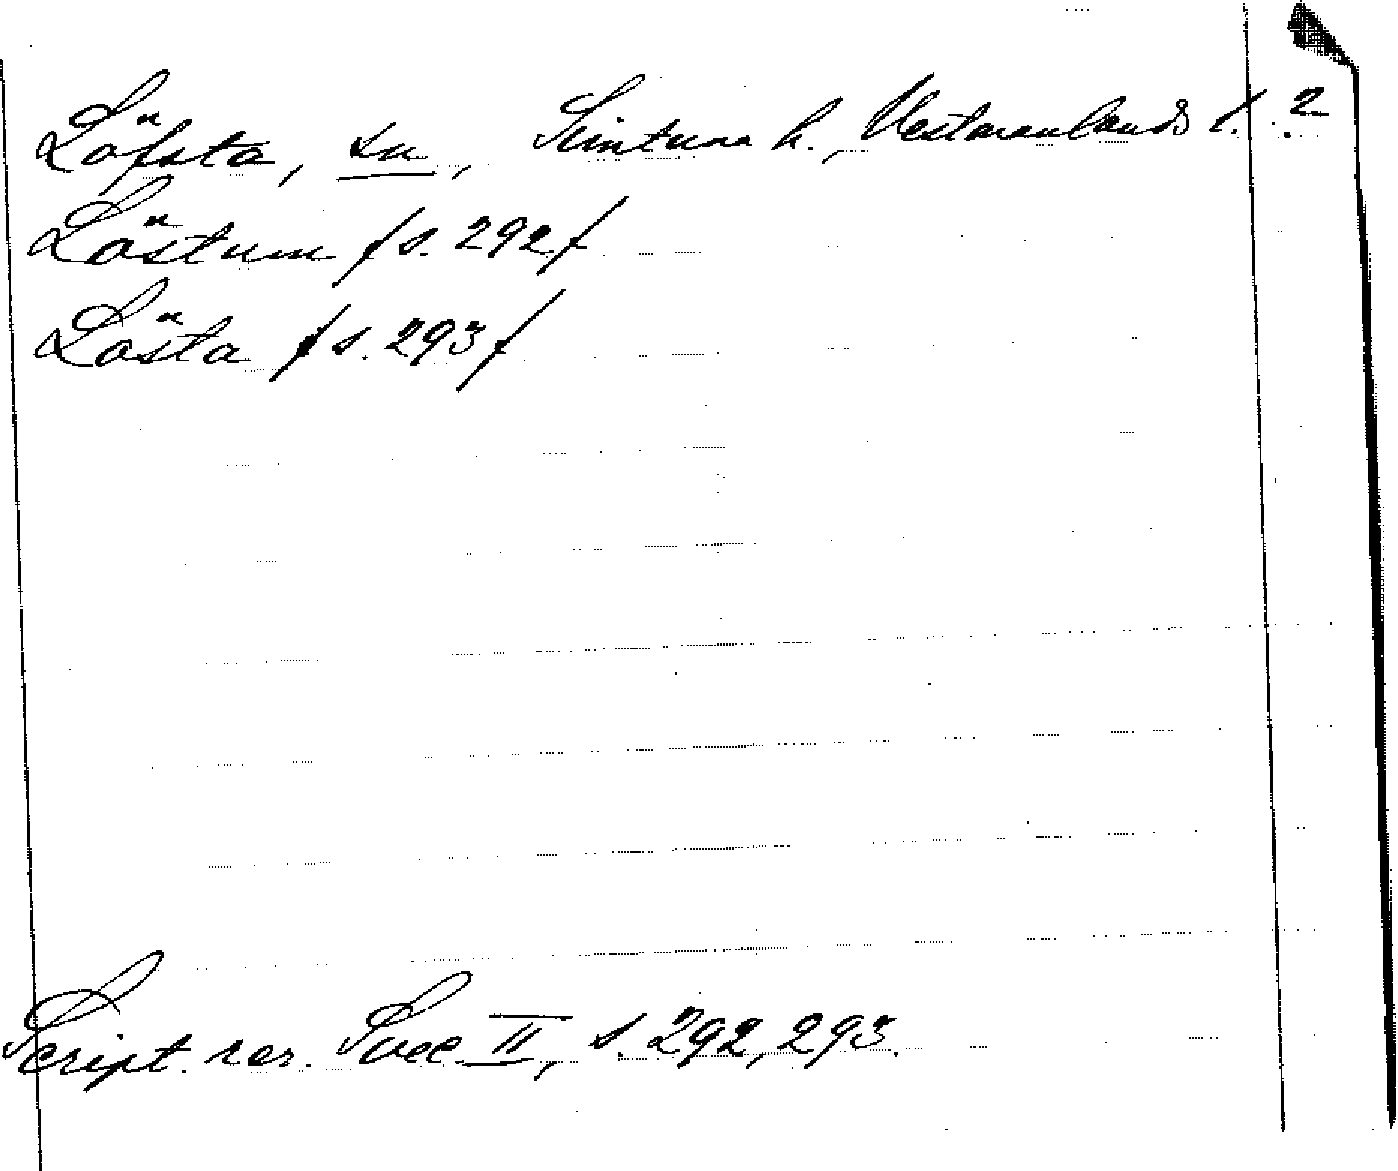 Löfsta, sn, Simtuna h., Vestmanlands l. ?
Löstum /s. 292/
Lösta /s. 293/
Script. rer. Svec. II, s. 292, 293.